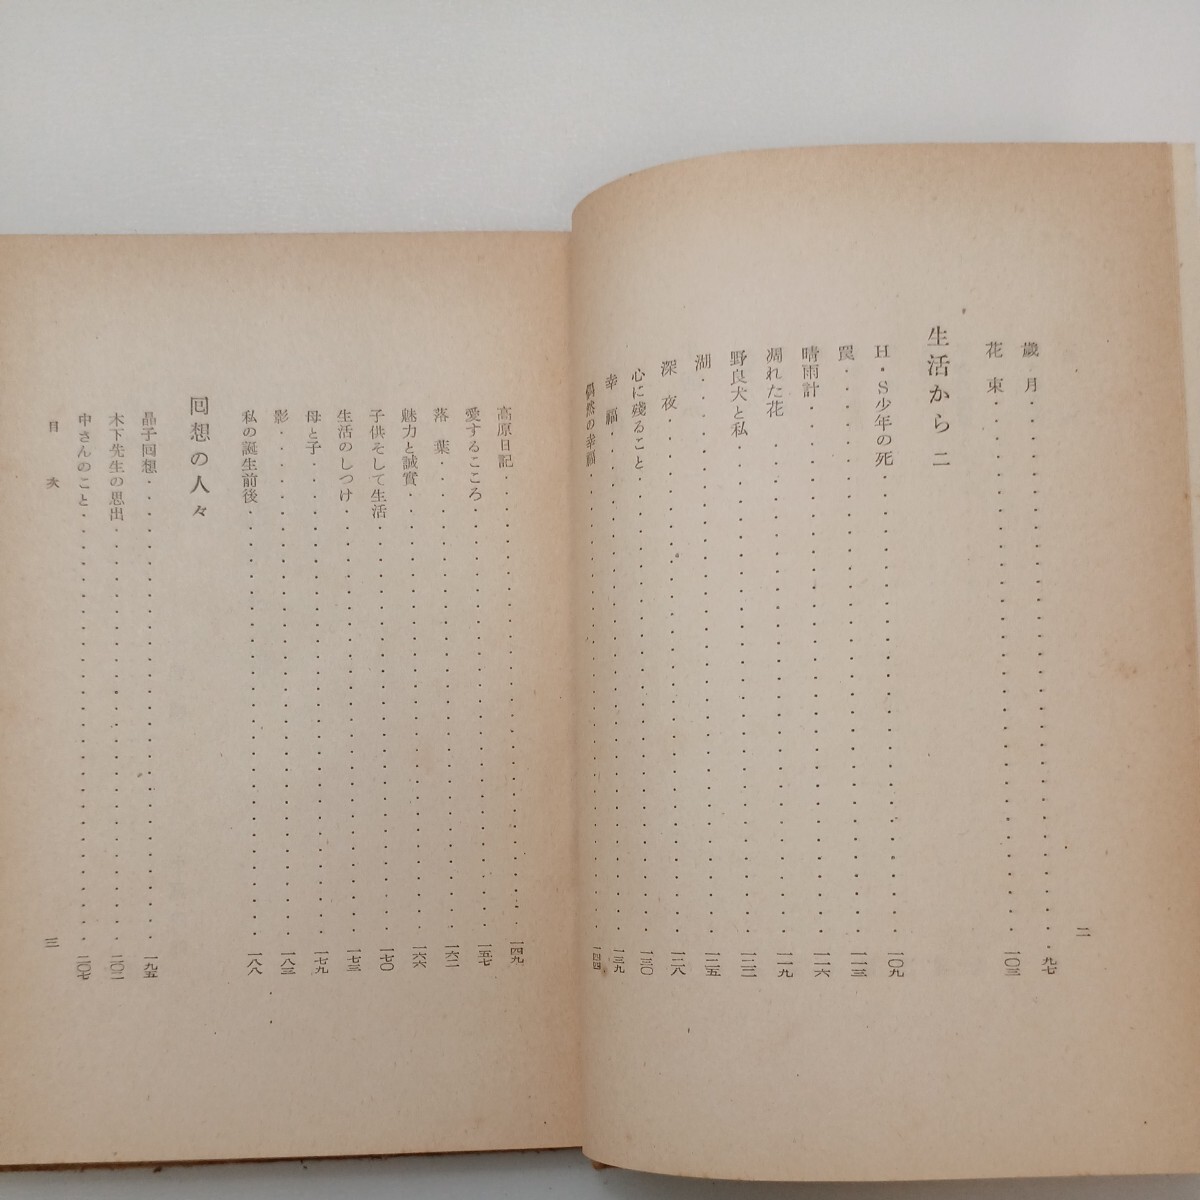 歳月 九七
花束 一〇三
生活から 二
H・S少年の死 一〇九
罠 一一三
晴雨計 一一六
凋れた花 一一九
野良犬と私 一二二
湖 一二五
深夜 一二八
心に残ること 一三〇
幸福 一三九
偶然の幸福 一四四
二
高原日記 一四九
愛するこころ 一五七
落葉 一六二
魅力と誠實 一六六
子供そして生活 一七〇
生活のしつけ 一七三
母と子 一七九
影 一八三
私の誕生前後 一八八
回想の人々
晶子回想 一九五
木下先生の思出 二〇二
中さんのこと 二〇七
目次
三